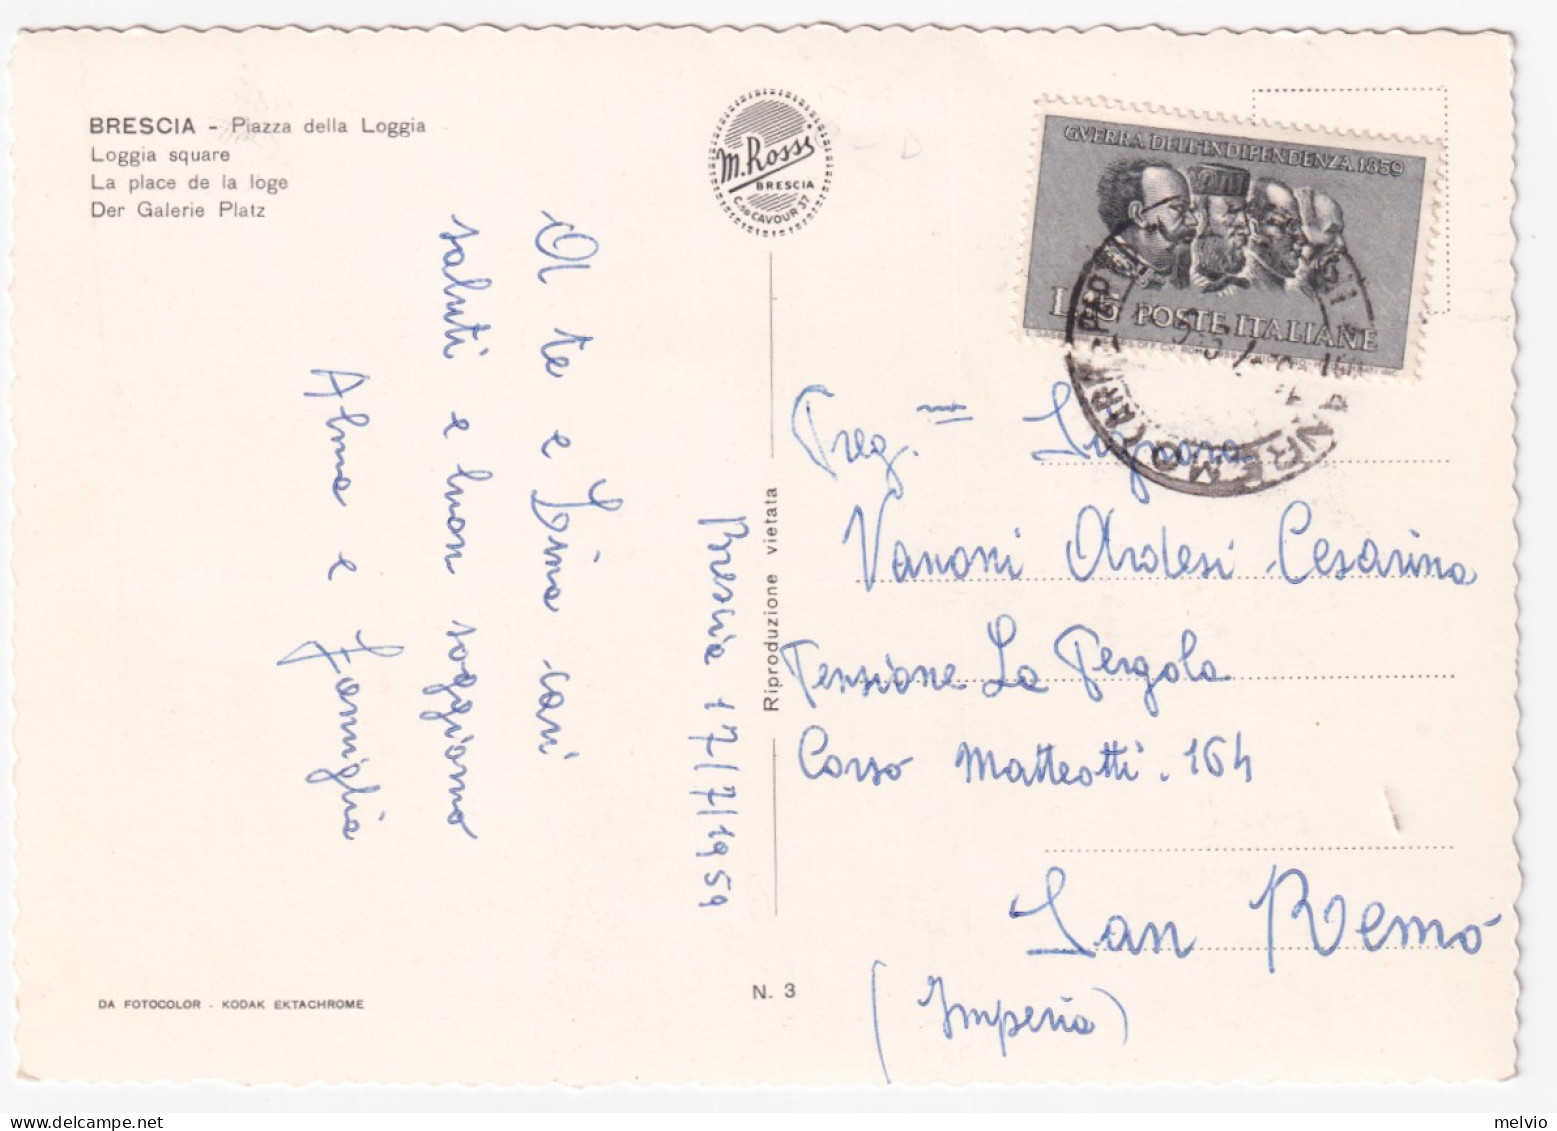 BRESCIA - Piazza della Loggia
Loggia square
La place de la loge
Der Galerie Platz
M. Rossi
BRESCIA
C.so CAVOUR 37
GVERRA DELL'INDIPENDENZA 1859
L. 15 POSTE ITALIANE
A te e Lina cari
saluti e buon soggiorno
Alma e famiglia
Brescia 17/7/1959
Riproduzione vietata
Preg.ma Signora
Vanoni Ardesi Cesarina
Pensione La Pergola
Corso Matteotti. 164
San Remo
(Imperia)
DA FOTOCOLOR - KODAK EKTACHROME
N. 3
melvio